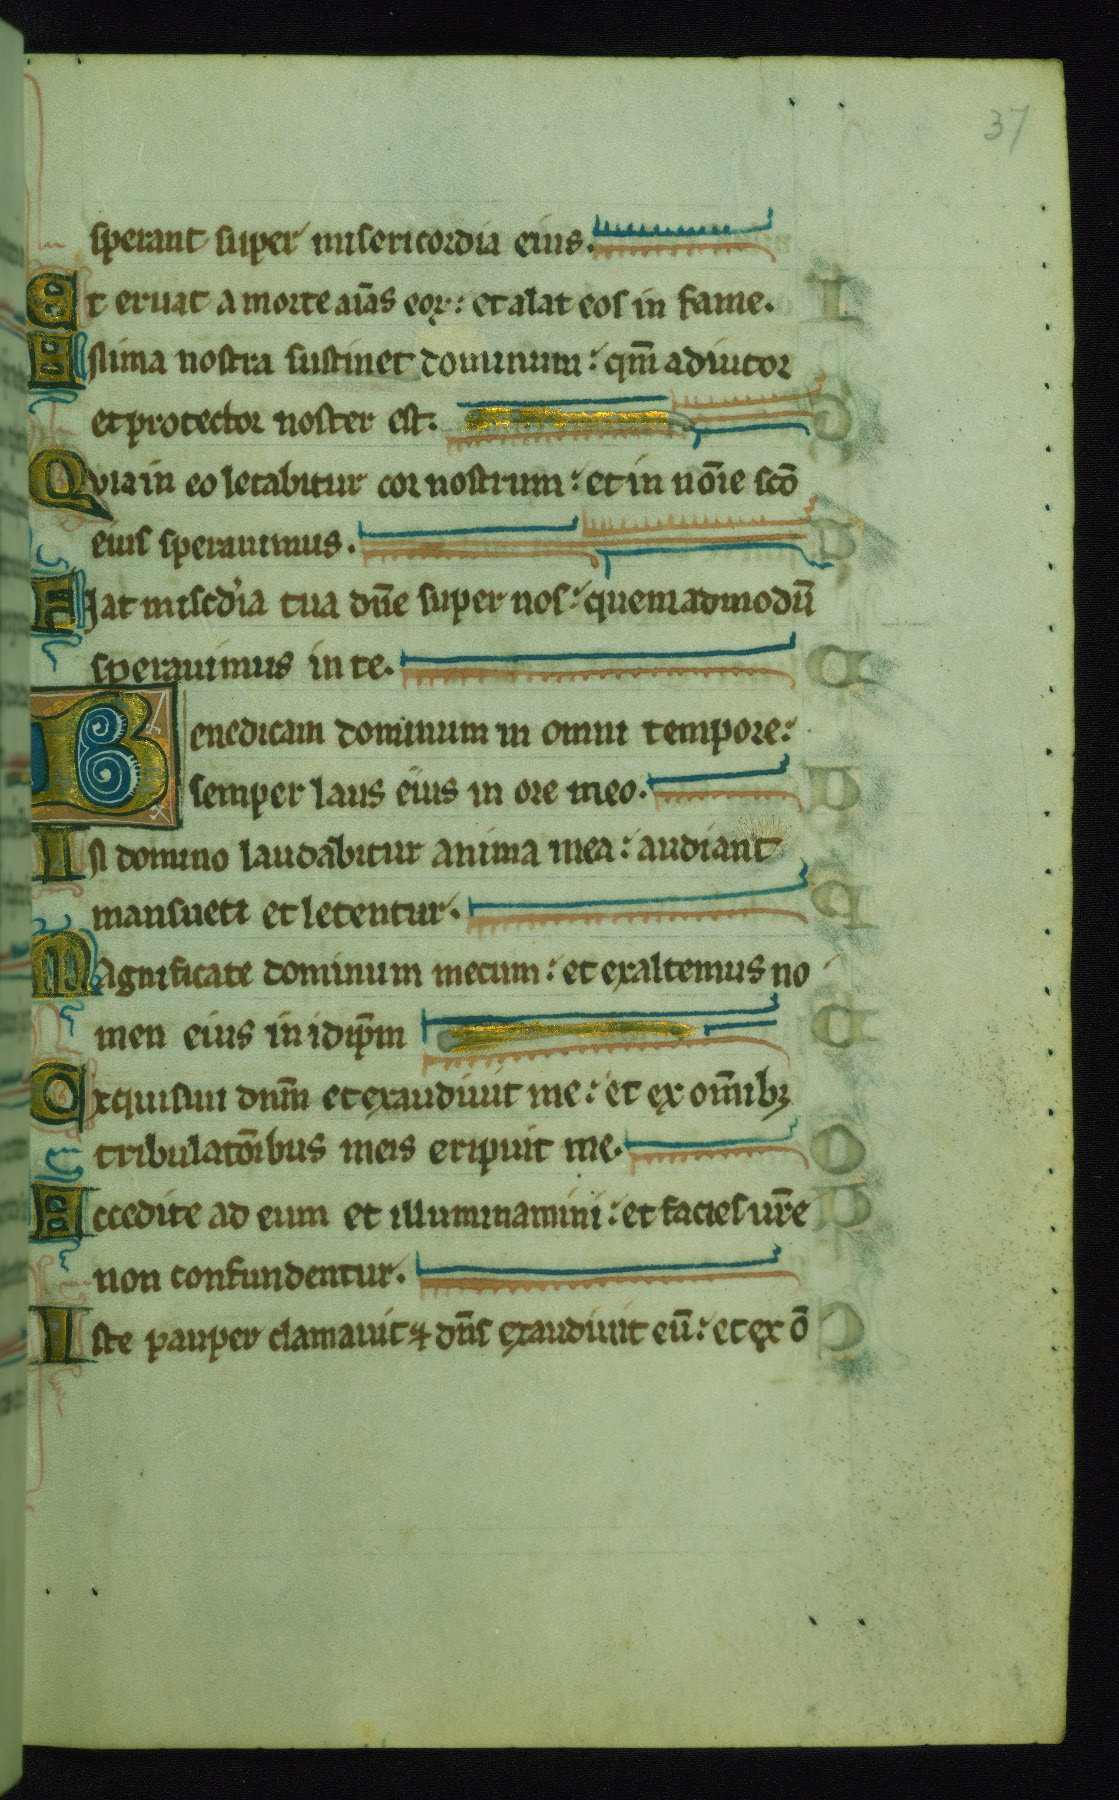 37
sperant super misericordia eius.
Et eruat a morte aīās eoꝝ: et alat eos in fame.
Anima nostra sustinet dominum: qm̄ adiutor
et protector noster est.
Quia in eo letabitur cor nostrum: et in nōīe scō
eius sperauimus.
Fiat misc̄dia tua dn̄e super nos: quemadmodū
sperauimus in te.
Benedicam dominum in omni tempore:
semper laus eius in ore meo.
In domino laudabitur anima mea: audiant
mansueti et letentur.
Magnificate dominum mecum: et exaltemus no
men eius in idip̄m
Exquisiui dn̄m et exaudiuit me: et ex om̄ibꝫ
tribulatōībus meis eripuit me.
Accedite ad eum et illuminamini: et facies ur̄e
non confundentur.
Iste pauper clamauit ⁊ dn̄s exaudiuit eū: et ex ō